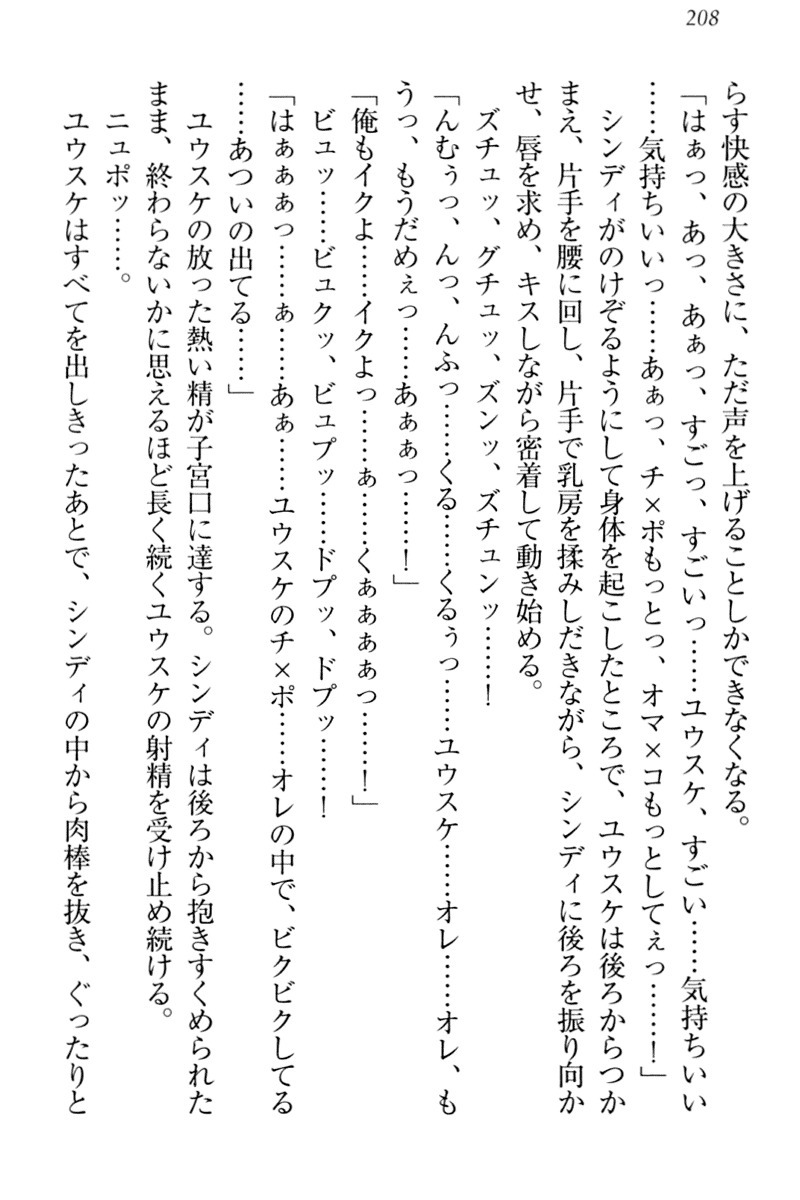 208
らす快感の大きさに、ただ声を上げることしかできなくなる。
「はぁっ、あっ、あぁっ、すごっ、すごいっ……ユウスケ、すごい……気持ちいい
……気持ちいいっ……あぁっ、チ×ポもっとっ、オマ×コもっとしてぇっ……！」
シンディがのけぞるようにして身体を起こしたところで、ユウスケは後ろからつか
まえ、片手を腰に回し、片手で乳房を揉みしだきながら、シンディに後ろを振り向か
せ、唇を求め、キスしながら密着して動き始める。
ズチュッ、グチュッ、ズンッ、ズチュンッ……！
「んむぅっ、んっ、んふっ……くる……くるぅっ……ユウスケ……オレ……オレ、も
うっ、もうだめぇっ……あぁぁっ……！」
「俺もイクよ……イクよっ……ぁ……くぁぁぁぁっ……！」
ビュッ……ビュクッ、ビュプッ……ドプッ、ドプッ……！
「はぁぁぁっ……ぁ……あぁ……ユウスケのチ×ポ……オレの中で、ビクビクしてる
……あついの出てる……」
ユウスケの放った熱い精が子宮口に達する。シンディは後ろから抱きすくめられた
まま、終わらないかに思えるほど長く続くユウスケの射精を受け止め続ける。
ニュポッ……。
ユウスケはすべてを出しきったあとで、シンディの中から肉棒を抜き、ぐったりと